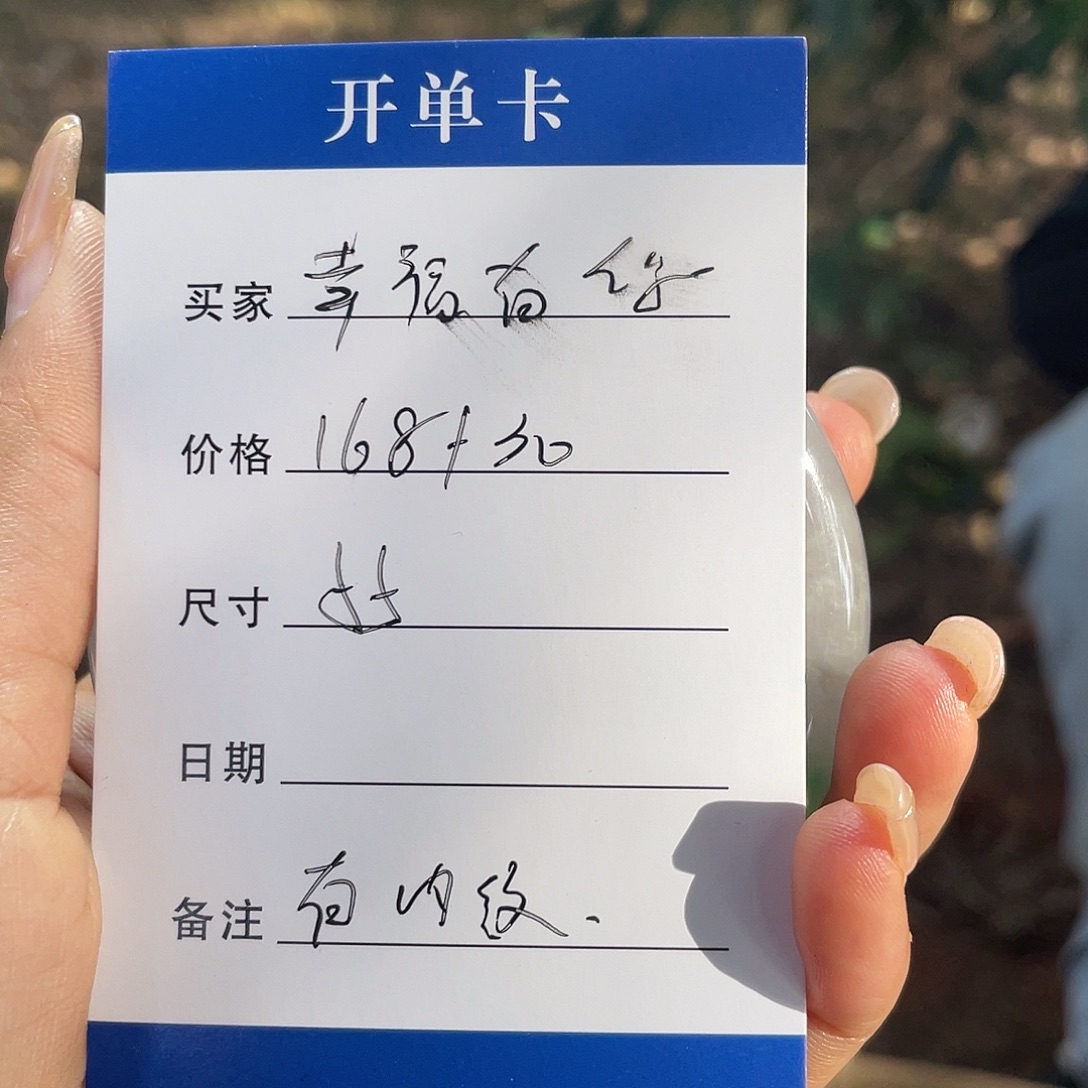 开单卡
买家 幸福有
价格 168+30
尺寸 55
日期
备注 有内纹.